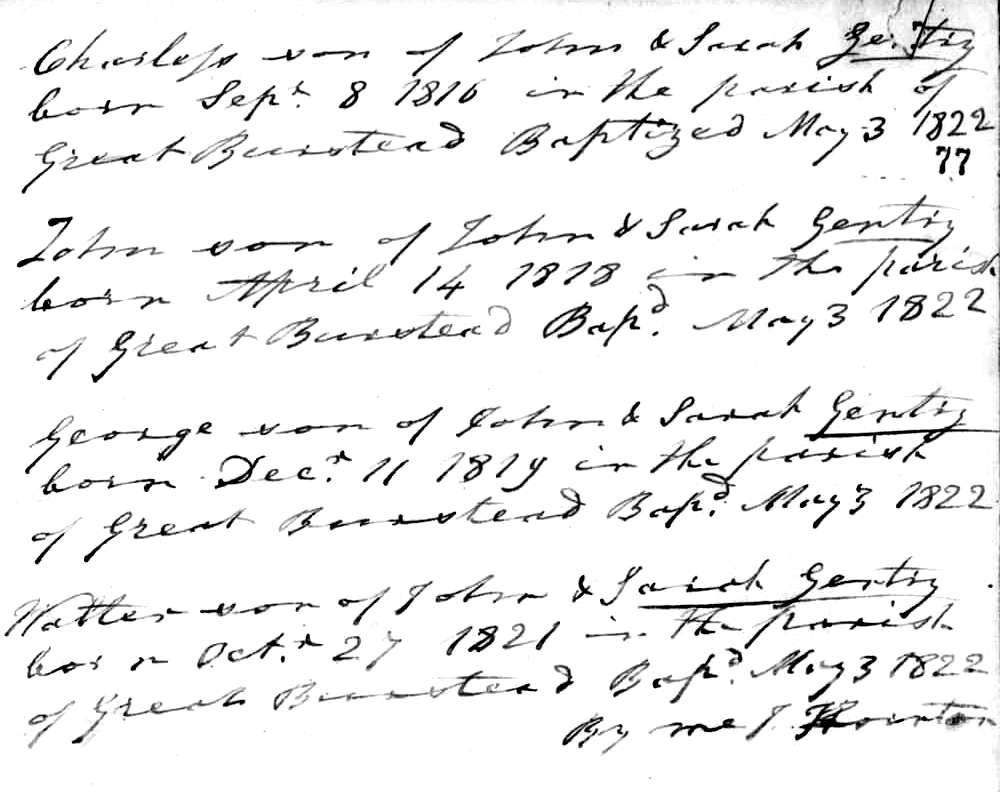 Charles son of John & Sarah Gentry
born Sepr. 8 1816 in the parish of
Great Burstead Baptized May 3 1822
77
John son of John & Sarah Gentry
born April 14 1818 in the parish
of Great Burstead Bapd. May 3 1822
George son of John & Sarah Gentry
born Decr. 11 1819 in the parish
of Great Burstead Bapd. May 3 1822
Walter son of John & Sarah Gentry
born Octr. 27 1821 in the parish
of Great Burstead Bapd. May 3 1822
By me J.